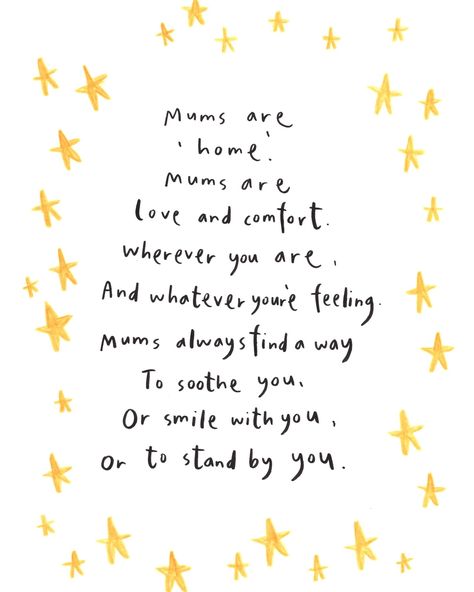 Mums are
'home'.
Mums are
love and comfort.
wherever you are,
And whatever you're feeling.
Mums always find a way
To soothe you,
Or smile with you,
Or to stand by you.